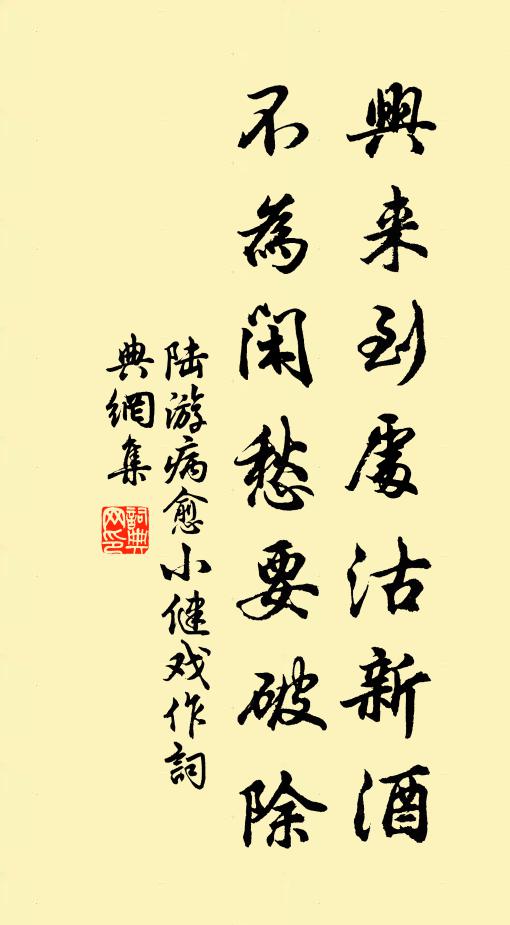 興来到處沽新酒
不為閑愁要破除
陆游病愈小健戏作詞
典網集
詞典
网印